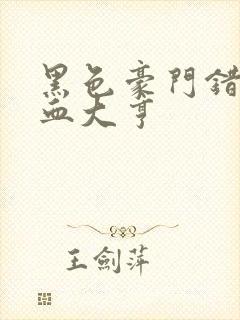 黑色豪門錯
血大亨
王劍萍